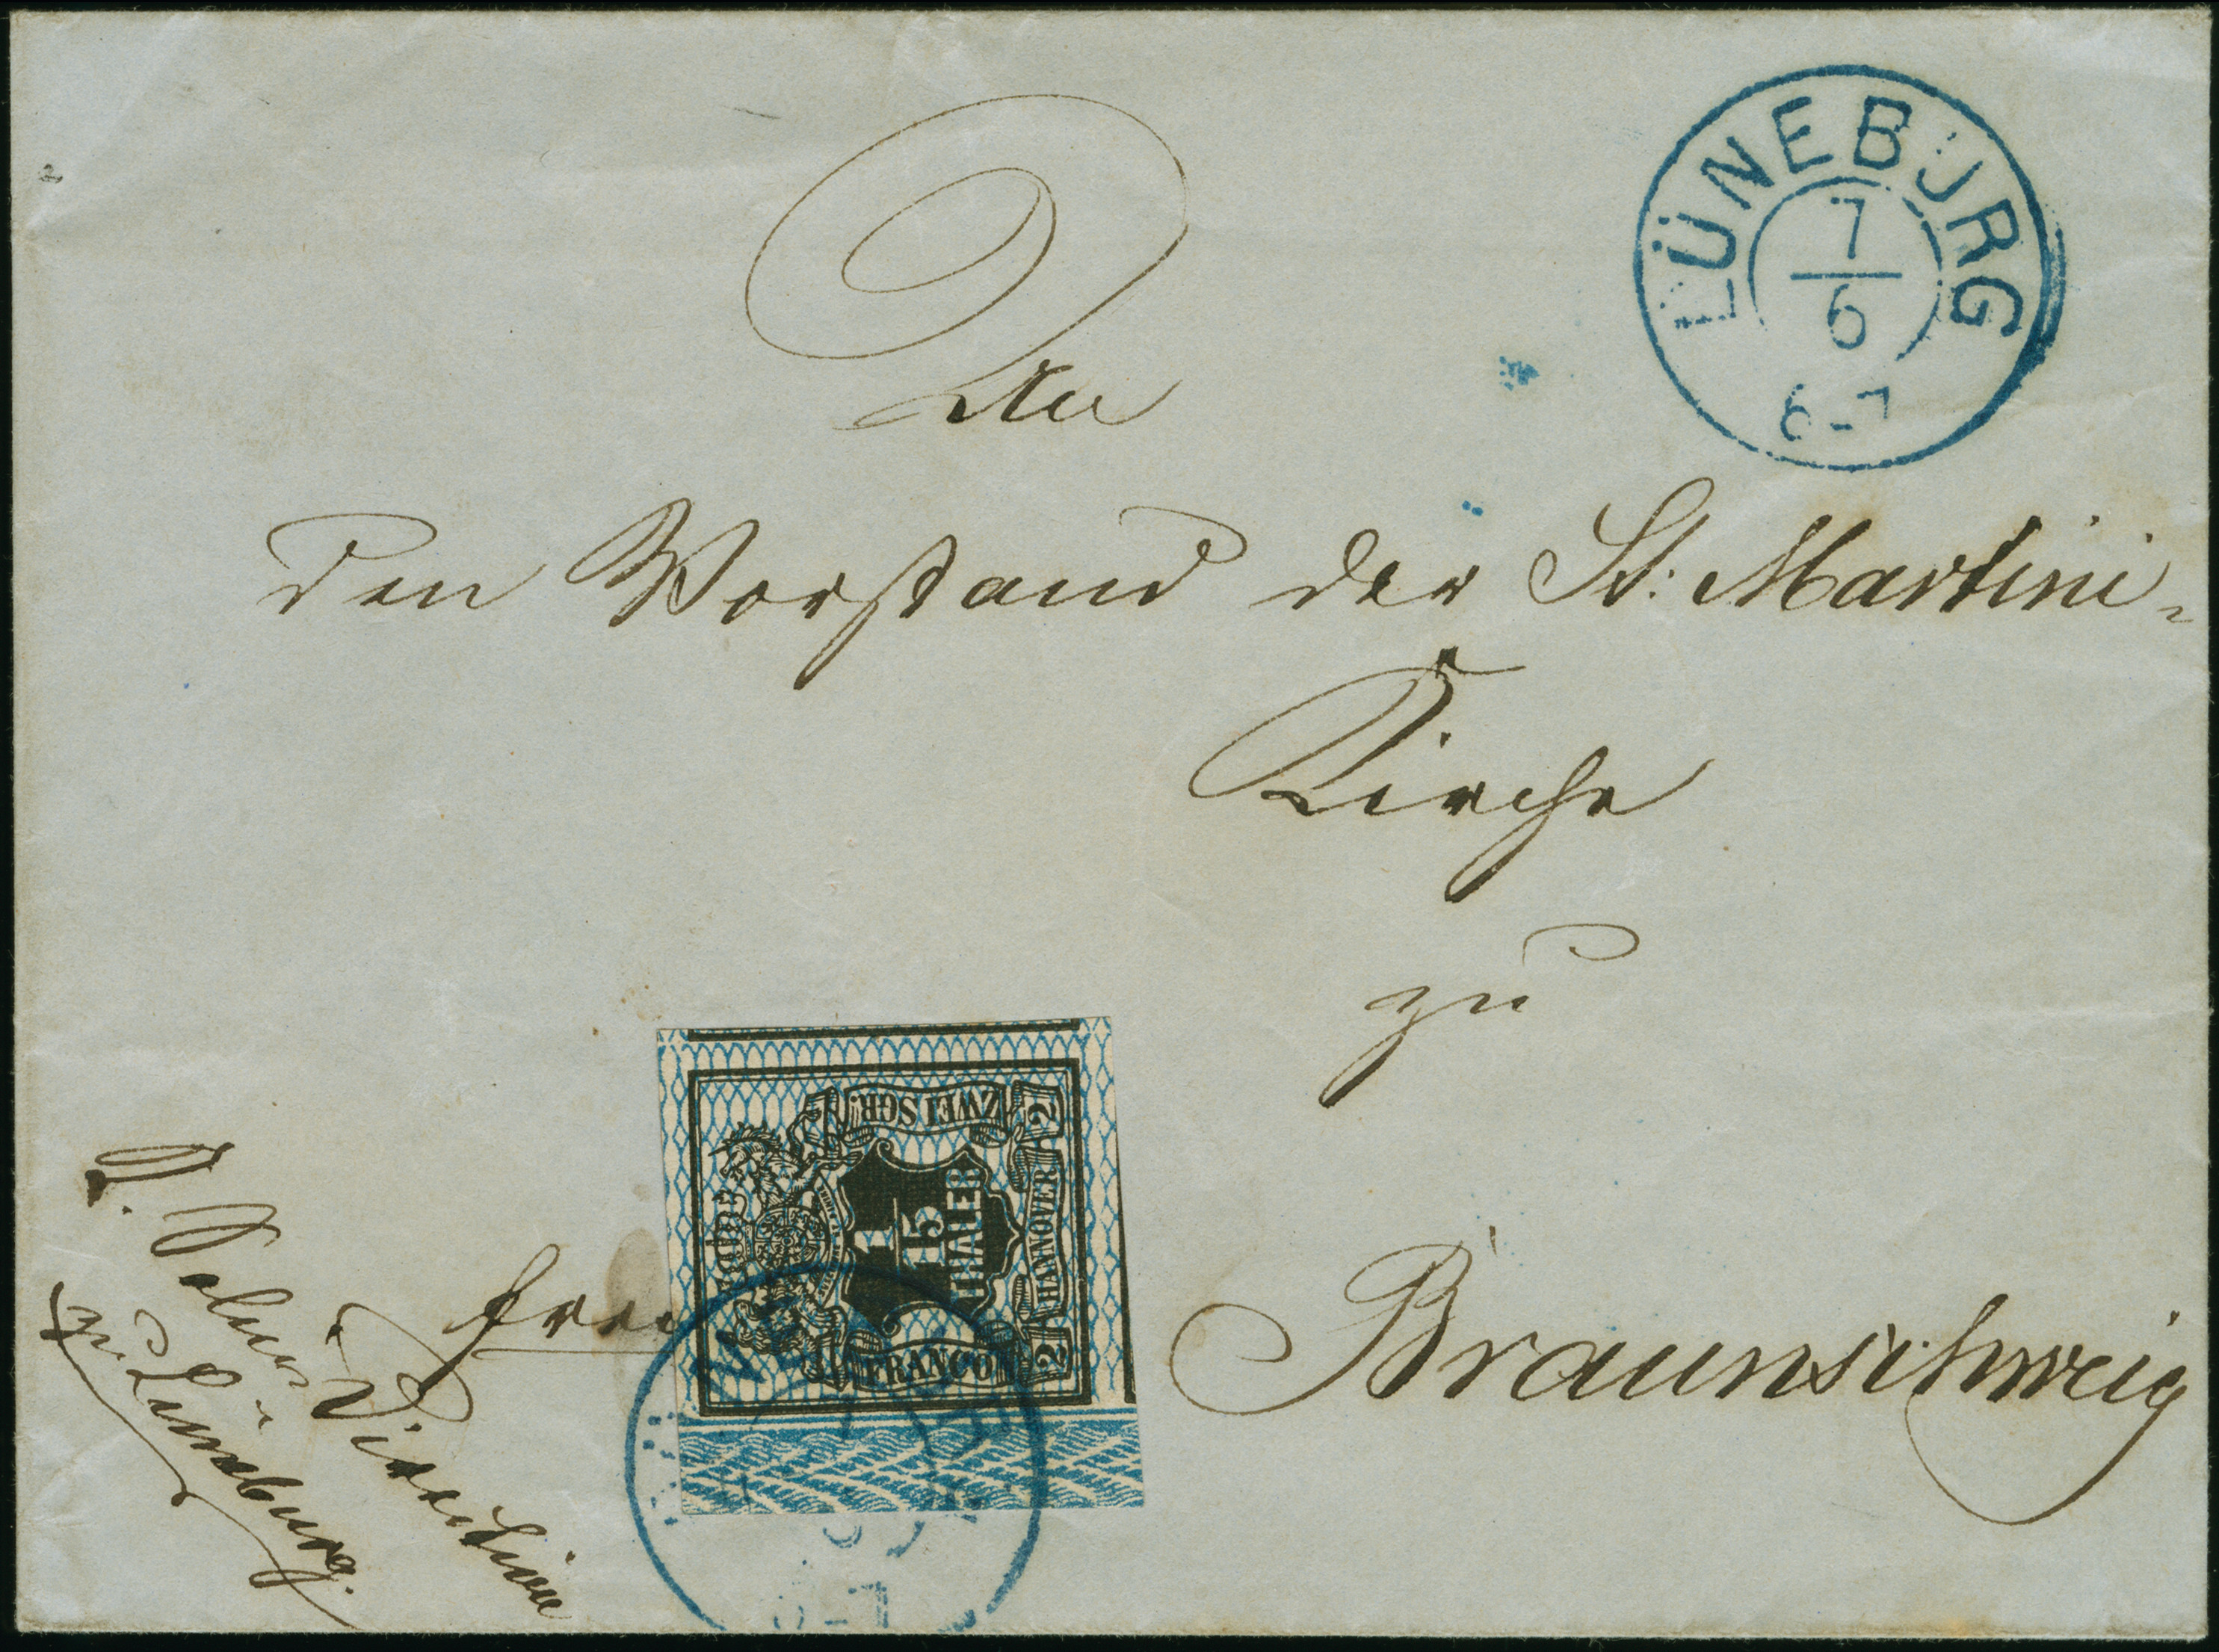 LÜNEBURG
7
6
6-7
An
den Vorstand der St: Martini-
Kirche
zu
Braunschweig
D. Salin Direction
zu Lüneburg.
ZWEI SGR.
2
1
15
THALER
HANNOVER
FRANCO
2